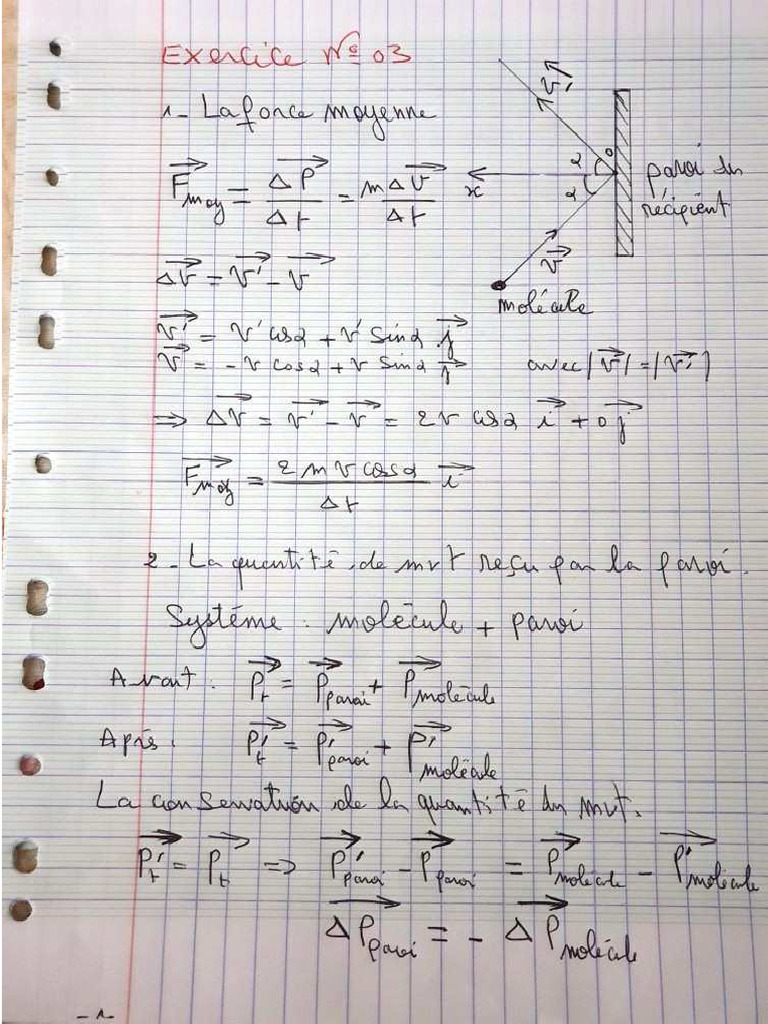 Exercice N° 03
1- La force moyenne
F⃗moy = ΔP⃗/Δt = m ΔV⃗/Δt
ΔV⃗ = V⃗' - V⃗
V⃗' = V' cosα + V' sinα j⃗
V⃗ = - V cosα + V sinα j⃗ avec |V⃗| = |V⃗'|
⇒ ΔV⃗ = V⃗' - V⃗ = 2V cosα i⃗ + 0 j⃗
F⃗moy = 2 m V cosα / Δt i⃗
V⃗'
α
o
x
α
paroi du
récipient
V⃗
molécule
2- La quantité de mvt reçu par la paroi.
Système : molécule + paroi
Avant : P⃗t = P⃗paroi + P⃗molécule
Après : P⃗'t = P⃗'paroi + P⃗'molécule
La conservation de la quantité du mvt.
P⃗'t = P⃗t ⇒ P⃗'paroi - P⃗paroi = P⃗molécule - P⃗'molécule
ΔP⃗paroi = - ΔP⃗molécule
-1-